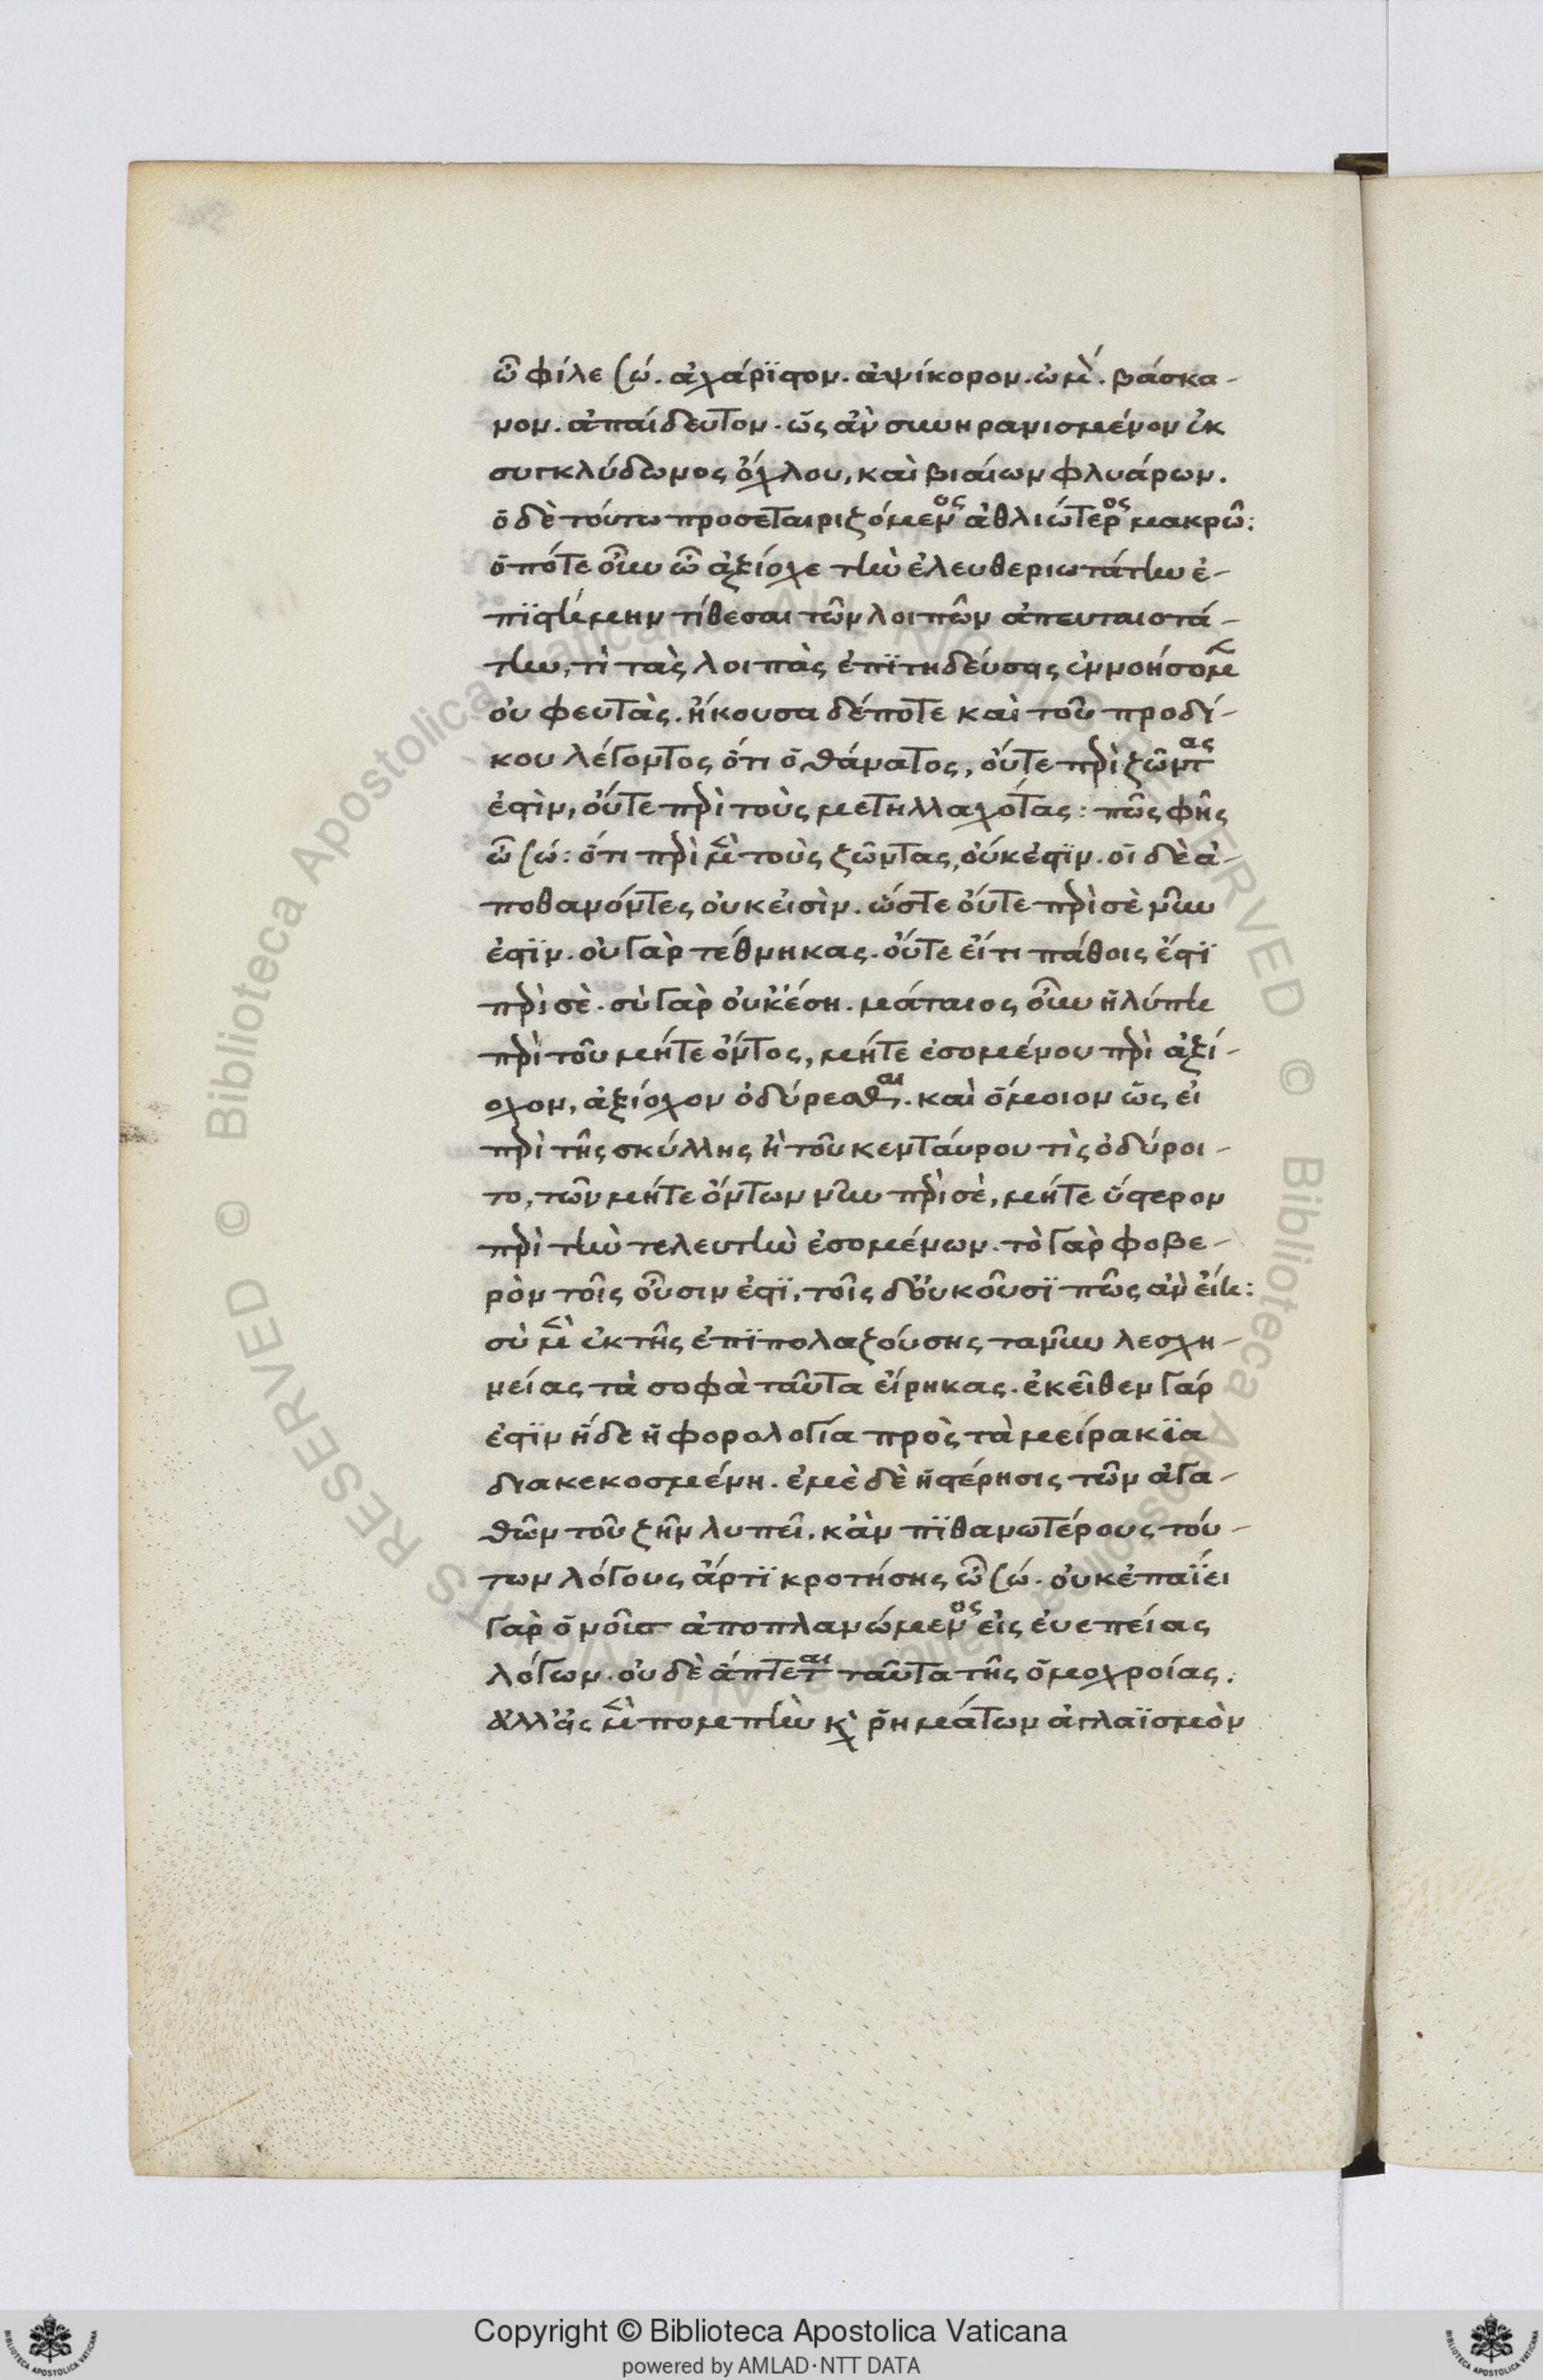 ὦ φίλε Σώ. ἀχάριστον. ἀψίκορον. ὠμὸν. βάσκα-
νον. ἀπαίδευτον. ὡς ἂν συνηρανισμένον ἐκ
συγκλύδωνος ὄχλου, καὶ βιαίων φλυάρων.
ὁ δὲ τούτω προσεταιριζόμενος ἀθλιώτερος μακρῶ:
ὁπότε οὖν ὦ ἀξίοχε τὴν ἐλευθεριωτάτην ἐ-
πιστήμην τίθεσαι τῶν λοιπῶν ἀπευταιστά-
την, τὶ τὰς λοιπὰς ἐπιτηδεύσεις ἐννοήσομεν
οὐ φευτὰς. ἤκουσα δέποτε καὶ τοῦ προδί-
κου λέγοντος ὅτι ὁ θάνατος, οὔτε περὶ ζῶντας
ἐστὶν, οὔτε περὶ τοὺς μετηλλαχότας: πῶς φῆς
ὦ Σώ: ὅτι περὶ μὲν τοὺς ζῶντας, οὐκ ἔστιν. οἱ δὲ ἀ-
ποθανόντες οὐκ εἰσὶν. ὥστε οὔτε περὶ σὲ νῦν
ἐστιν. οὐ γὰρ τέθνηκας. οὔτε εἴ τι πάθοις ἔστι
περὶ σὲ. σὺ γὰρ οὐκ ἔση. μάταιος οὖν ἡ λύπη
περὶ τοῦ μήτε ὄντος, μήτε ἐσομένου περὶ ἀξί-
οχον, ἀξίοχον ὀδύρεσθαι. καὶ ὅμοιον ὡς εἰ
περὶ τῆς σκύλλης ἢ τοῦ κενταύρου τὶς ὀδύροι-
το, τῶν μήτε ὄντων νῦν περὶ σὲ, μήτε ὕστερον
περὶ τὴν τελευτὴν ἐσομένων. τὸ γὰρ φοβε-
ρὸν τοῖς οὖσιν ἐστι, τοῖς δ' οὐκ οὖσι πῶς ἂν εἴη:
σὺ μὲν ἐκ τῆς ἐπιπολαζούσης τανῦν λεσχη-
νείας τὰ σοφὰ ταῦτα εἴρηκας. ἐκεῖθεν γάρ
ἐστιν ἥδε ἡ φορολογία πρὸς τὰ μειράκια
διακεκοσμένη. ἐμὲ δὲ ἡ στέρησις τῶν ἀγα-
θῶν τοῦ ζῆν λυπεῖ. κἂν πιθανωτέρους τού-
των λόγους ἄρτι κροτήσης ὦ Σώ. οὐκ ἐπαΐει
γὰρ ὁ νοῦς ἀποπλανώμενος εἰς εὐεπείας
λόγων. οὐδὲ ἅπτεται ταῦτα τῆς ὁμοχροίας.
ἀλλ' εἰς μὲν πομπὴν καὶ ῥημάτων ἀγλαϊσμὸν
Copyright © Biblioteca Apostolica Vaticana
powered by AMLAD·NTT DATA